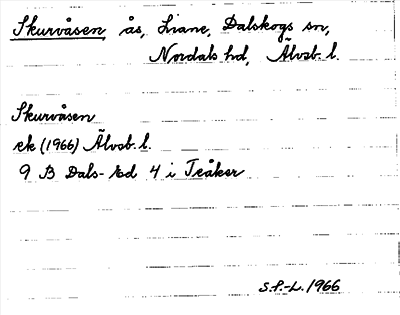 Skurvåsen, ås, Liane, Dalskogs sn,
Nordals hd, Älvsb. l.
Skurvåsen
ek (1966) Älvsb. l.
9 B Dals-Ed 4 i Teåker
S.P.-L. 1966